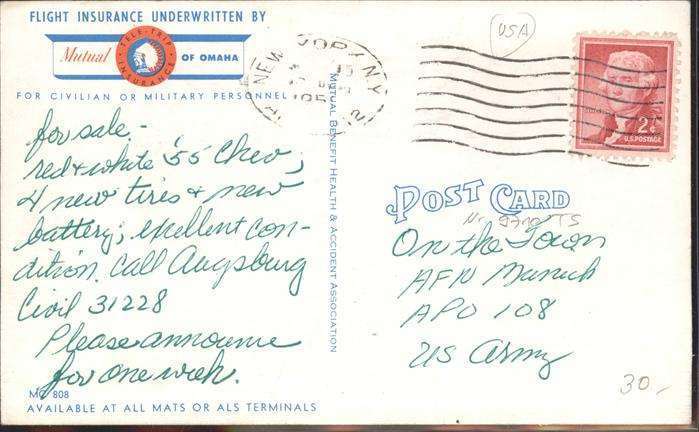 FLIGHT INSURANCE UNDERWRITTEN BY
Mutual
TELE-TRIP
INSURANCE
OF OMAHA
FOR CIVILIAN OR MILITARY PERSONNEL
for sale -
red & white '55 Chev;
4 new tires & new
battery; exellent con-
dition. Call Augsburg
Civil 31228
Please announce
for one week.
MC 808
AVAILABLE AT ALL MATS OR ALS TERMINALS
MUTUAL BENEFIT HEALTH & ACCIDENT ASSOCIATION
NEW YORK, N.Y.
USA
2¢
U.S. POSTAGE
POST CARD
On the Town
AFN Munich
APO 108
US Army
30,-